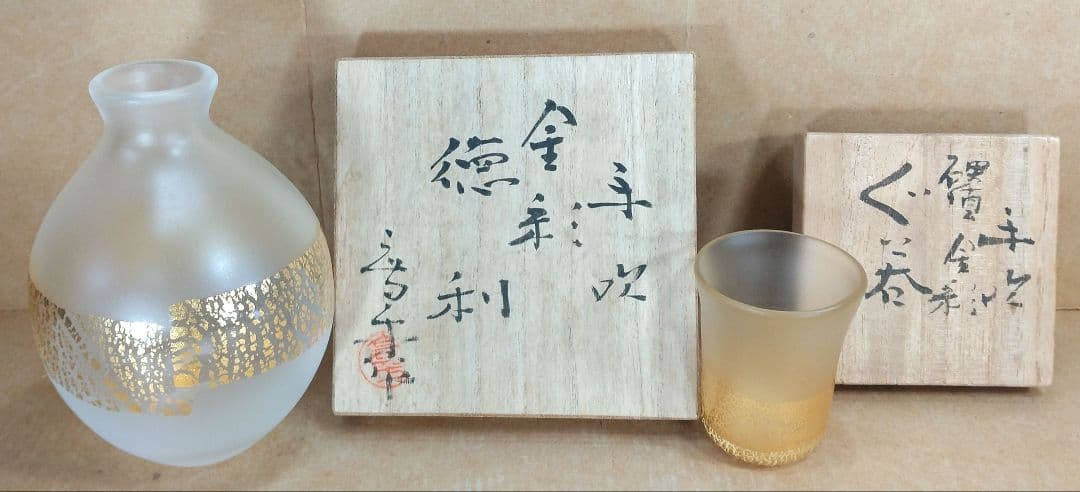 手吹
金彩
徳利
手吹
硝子金彩
ぐい呑